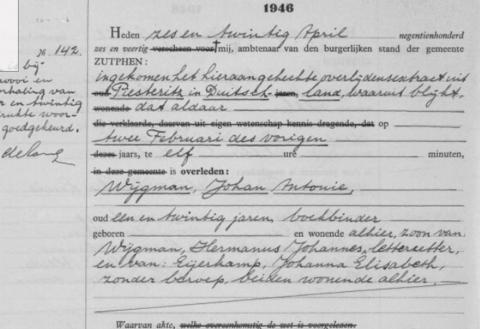 1946
№. 142.
Heden zes en twintig April negentienhonderd
zes en veertig verscheen voor mij, ambtenaar van den burgerlijken stand der gemeente
ZUTPHEN:
ingekomen het hieraangehechte overlijdensextract uit
Piesteritz in Duitsch- jaren, land, waaruit blijkt
wonende dat aldaar
die verklaarde, daarvan uit eigen wetenschap kennis dragende, dat op
twee Februari des vorigen
dezes jaars, te elf ure minuten,
in deze gemeente is overleden:
Wijgman, Johan Antonie,
oud een en twintig jaren, boekbinder
geboren en wonende alhier, zoon van
Wijgman, Hermanus Johannes, letterzetter,
en van: Eijerkamp, Johanna Elisabeth,
zonder beroep, beiden wonende alhier,
Waarvan akte, welke overeenkomstig de wet is voorgelezen.
bij
rooi en
erhaling van
en twintig
rukte woor-
goedgekeurd.